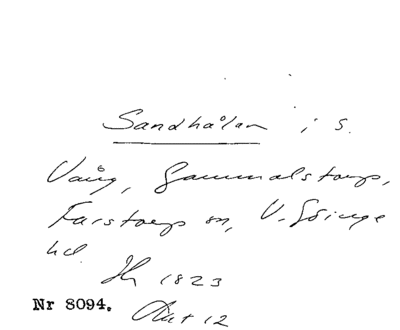 Sandhålan i S.
Vång, Gammalstorps,
Farstorps sn, V. Göinge
hd.
Jh 1823
Nr 8094. Akt 12